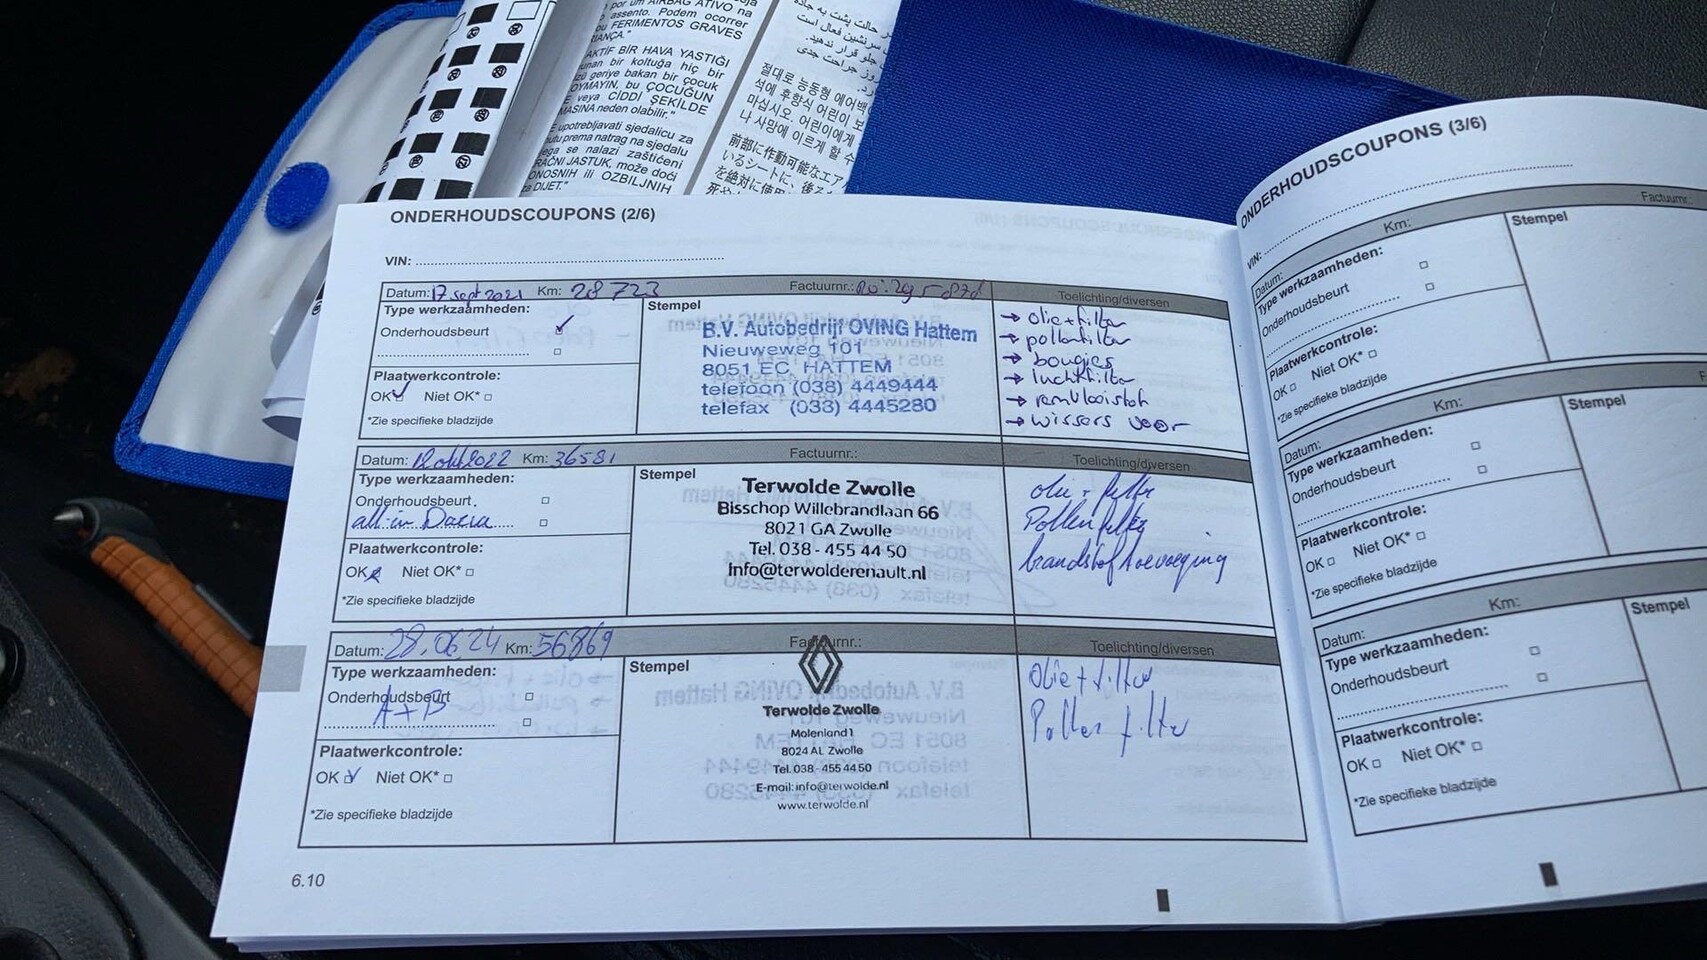 por um AIRBAG ATIVO na
assento. Podem ocorrer
FERIMENTOS GRAVES
AKTİF BİR HAVA YASTIĞI
bir koltuğa hiç bir
geriye bakan bir çocuk
bu ÇOCUĞUN
veya CİDDİ ŞEKİLDE
neden olabilir."
upotrebljavati sjedalicu za
prema natrag na sjedalu
se nalazi zaštićeni
JASTUK, može doći
ili OZBILJNIH
ZA DIJET."
절대로 능동형 에어백
석에 후향식 어린이 보
마십시오. 어린이에게
나 사망에 이르게 할 수
前部に作動可能なエア
いるシートに、後ろ
を絶対に使用
ONDERHOUDSCOUPONS (2/6)
VIN:
Datum: 17 sept 2021 Km: 28723 Factuurnr.:
Toelichting/diversen
Type werkzaamheden:
Onderhoudsbeurt
Plaatwerkcontrole:
OK Niet OK*
*Zie specifieke bladzijde
Stempel
B.V. Autobedrijf OVING Hattem
Nieuweweg 101
8051 EC HATTEM
telefoon (038) 4449444
telefax (038) 4445280
→ olie+filter
→ pollenfilter
→ bougies
→ luchtfilter
→ remvloeistof
→ wissers voor
Datum: 12 okt 2022 Km: 36581 Factuurnr.:
Toelichting/diversen
Type werkzaamheden:
Onderhoudsbeurt
all-in Dacia
Plaatwerkcontrole:
OK Niet OK*
*Zie specifieke bladzijde
Stempel
Terwolde Zwolle
Bisschop Willebrandlaan 66
8021 GA Zwolle
Tel. 038 - 455 44 50
Info@terwolderenault.nl
olie + filter
Pollenfilter
brandstof toevoeging
Datum: 28.06.24 Km: 56.869 Factuurnr.:
Toelichting/diversen
Type werkzaamheden:
Onderhoudsbeurt
A+B
Plaatwerkcontrole:
OK Niet OK*
*Zie specifieke bladzijde
Stempel
Terwolde Zwolle
Molenland 1
8024 AL Zwolle
Tel. 038 - 455 44 50
E-mail: info@terwolde.nl
www.terwolde.nl
Olie + filter
Pollen filter
6.10
ONDERHOUDSCOUPONS (3/6)
VIN:
Datum: Km: Factuurnr.
Type werkzaamheden:
Onderhoudsbeurt
Plaatwerkcontrole:
OK Niet OK*
*Zie specifieke bladzijde
Stempel
Datum: Km:
Type werkzaamheden:
Onderhoudsbeurt
Plaatwerkcontrole:
OK Niet OK*
*Zie specifieke bladzijde
Stempel
Datum: Km:
Type werkzaamheden:
Onderhoudsbeurt
Plaatwerkcontrole:
OK Niet OK*
*Zie specifieke bladzijde
Stempel